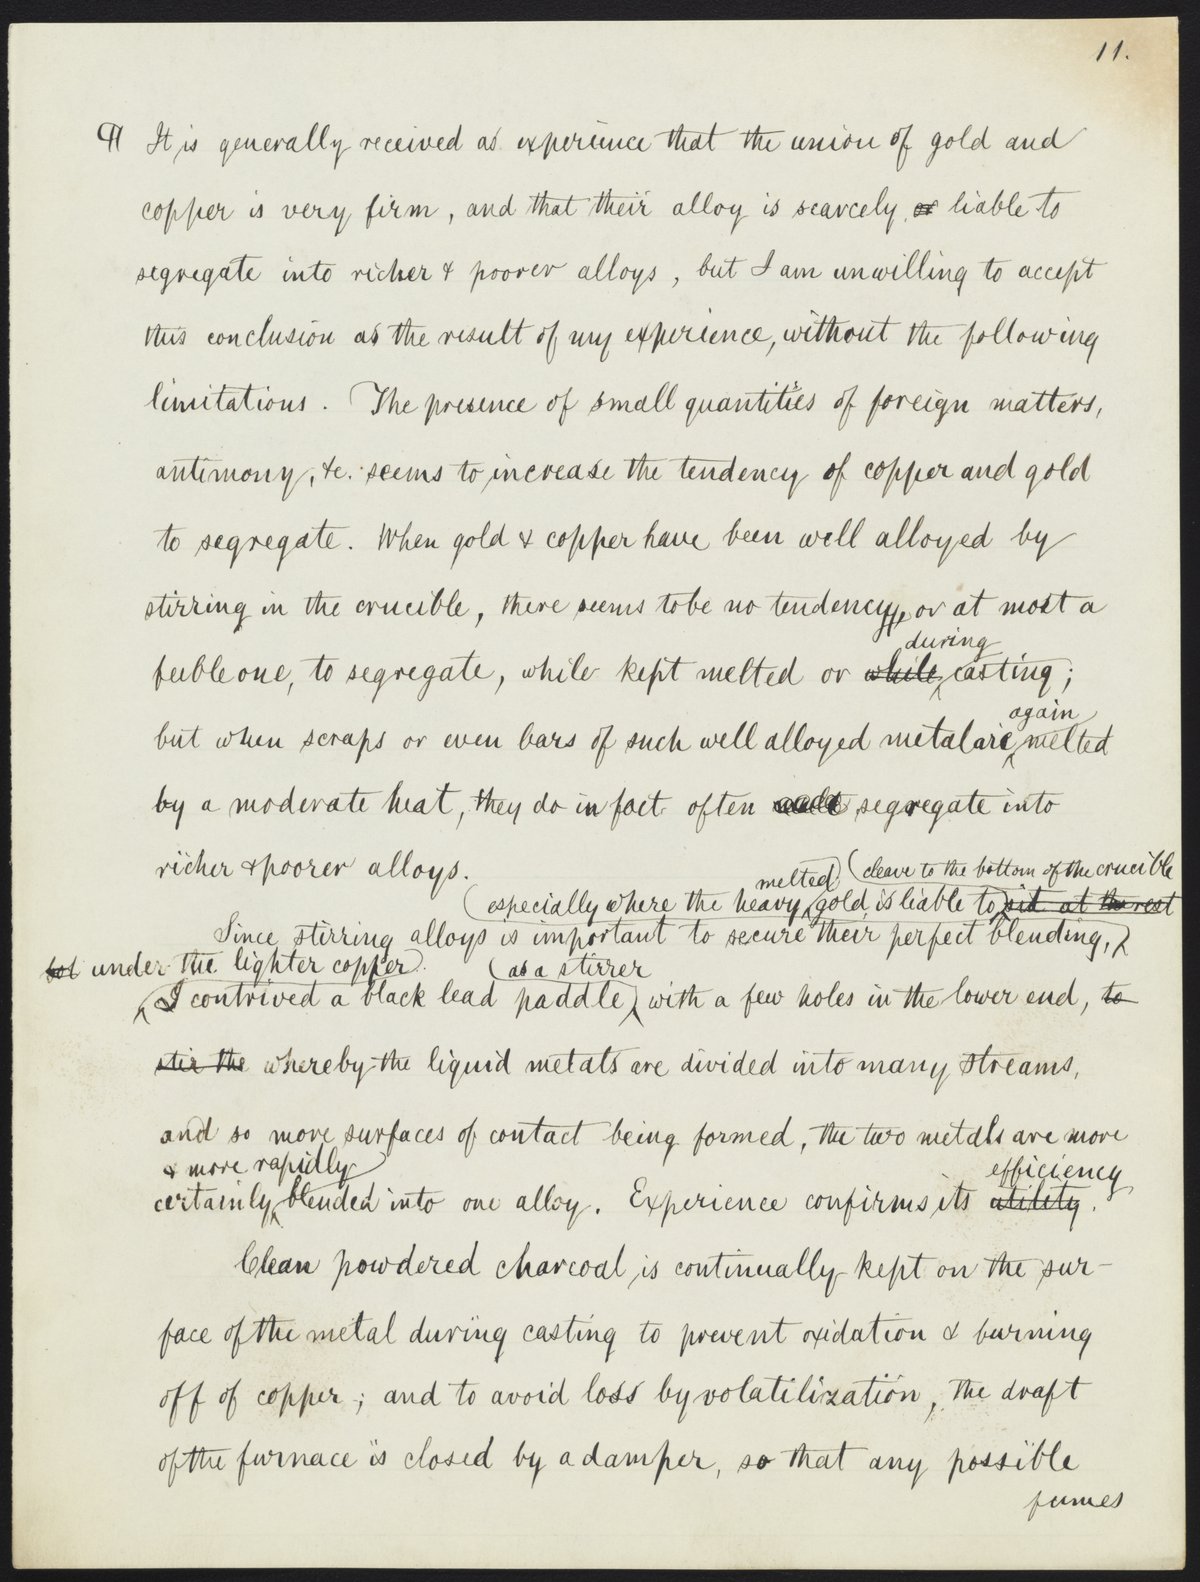 11.
¶ It is generally received as experience that the union of gold and
copper is very firm, and that their alloy is scarcely or liable to
segregate into richer & poorer alloys, but I am unwilling to accept
this conclusion as the result of my experience, without the following
limitations. The presence of small quantities of foreign matters,
antimony, &c. seems to increase the tendency of copper and gold
to segregate. When gold & copper have been well alloyed by
stirring in the crucible, there seems to be no tendency, or at most a
during
feeble one, to segregate, while kept melted or while casting;
again
but when scraps or even bars of such well alloyed metal are melted
by a moderate heat, they do in fact often segregate into
richer & poorer alloys.
melted (cleave to the bottom of the crucible
(especially where the heavy gold is liable to sit at the rest
Since stirring alloys is important to secure their perfect blending,
under the lighter copper) (as a stirrer
I contrived a black lead paddle, with a few holes in the lower end, to
stir the whereby the liquid metals are divided into many streams,
and so more surfaces of contact being formed, the two metals are more
& more rapidly efficiency
certainly blended into one alloy. Experience confirms its utility.
Clean powdered charcoal is continually kept on the sur-
face of the metal during casting to prevent oxidation & burning
off of copper; and to avoid loss by volatilization, the draft
of the furnace is closed by a damper, so that any possible
fumes